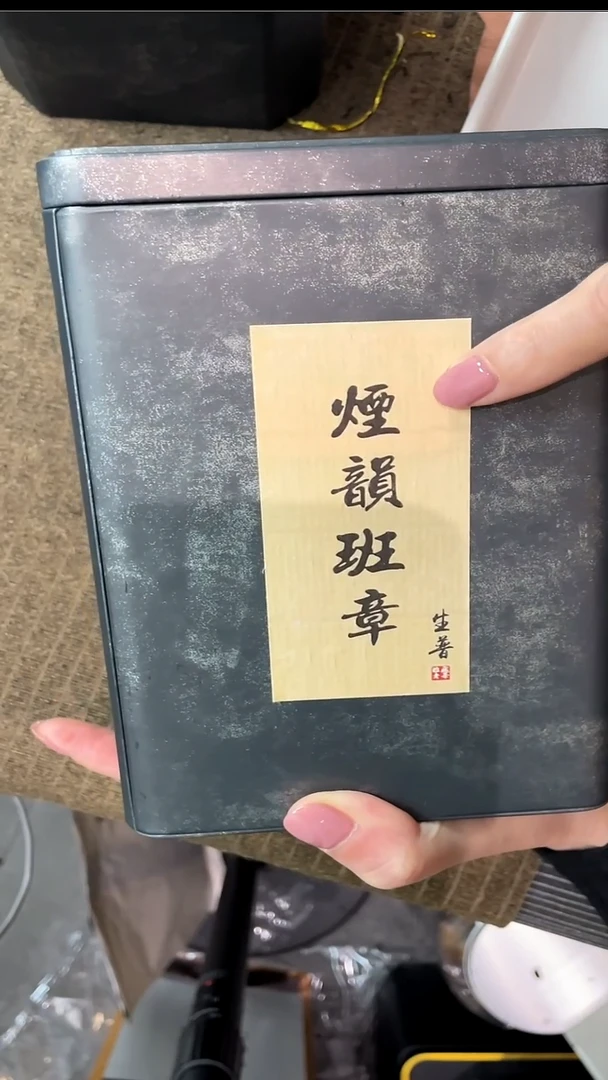 煙韻班章
生普